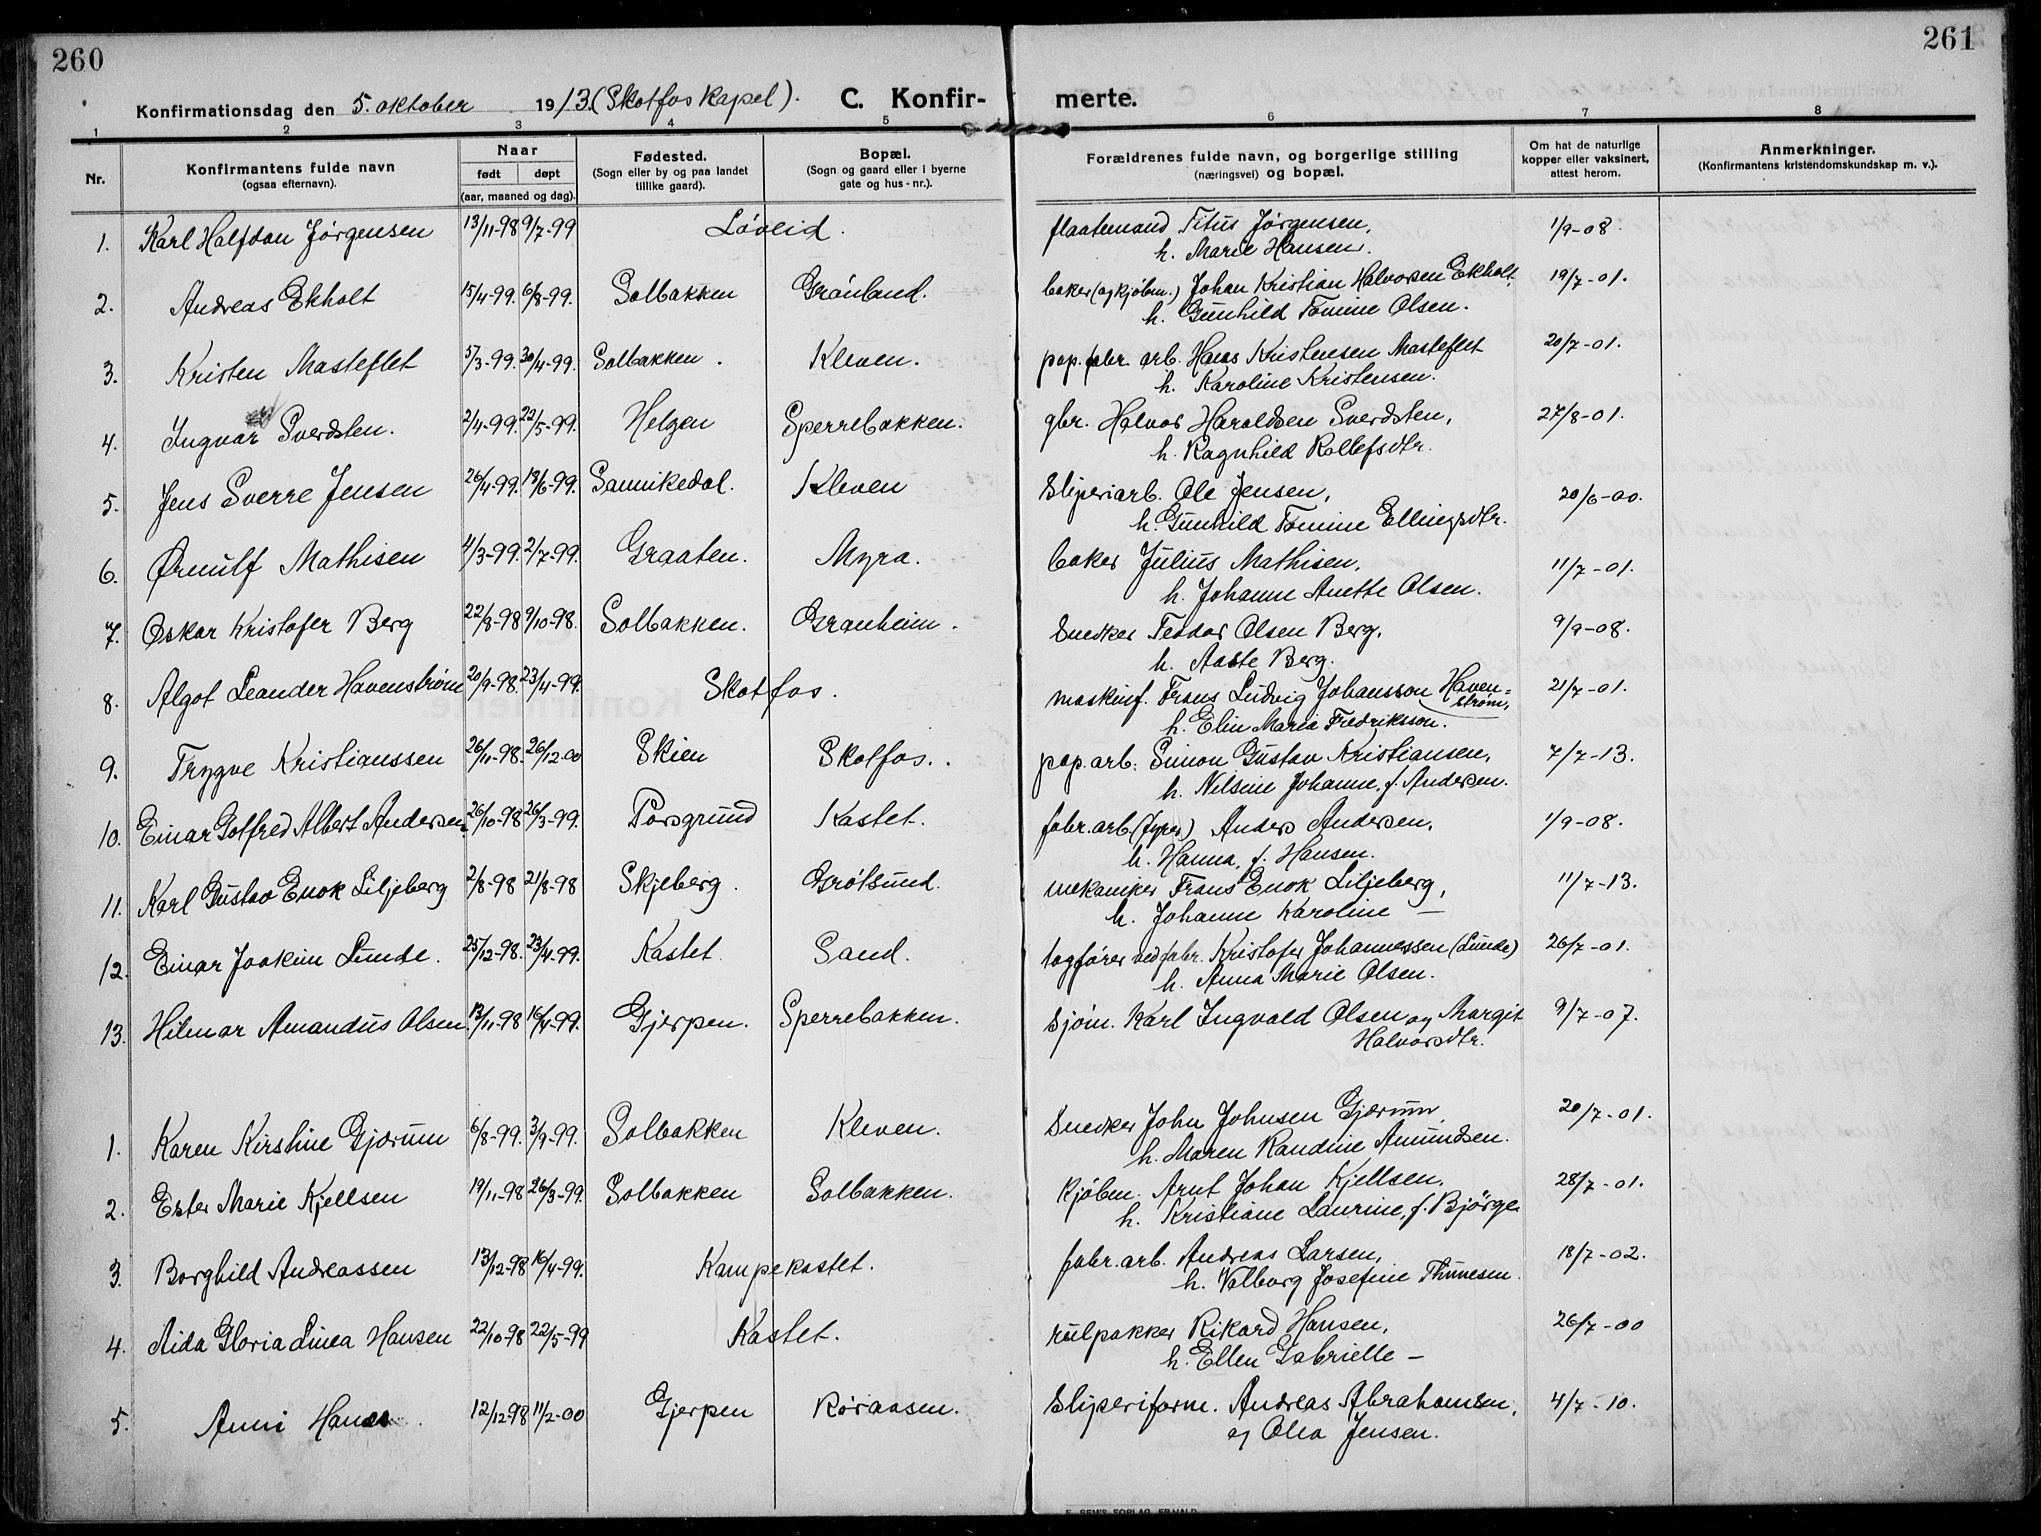 260
261
Konfirmationsdag den 5. oktober 1913. (Skotfos kapel).
C. Konfir-
merte.
1 2 3 4 5 6 7 8
Nr.
Konfirmantens fulde navn
(ogsaa efternavn).
Naar
født døpt
(aar, maaned og dag).
Fødested.
(Sogn eller by og paa landet
tillike gaard).
Bopæl.
(Sogn og gaard eller i byerne
gate og hus-nr.).
Forældrenes fulde navn, og borgerlige stilling
(næringsvei) og bopæl.
Om hat de naturlige
kopper eller vaksinert,
attest herom.
Anmerkninger.
(Konfirmantens kristendomskundskap m. v.).
1. Karl Halfdan Jørgensen 13/11-98 9/7-99 Løveid. flaatemand Titus Jørgensen, 1/9-08.
h. Marie Hansen.
2. Andreas Ekholt 15/4-99. 6/8-99. Solbakken Grønland. baker (og kjøbm.) Johan Kristian Halvorsen Ekholt, 19/7-01.
h. Gunhild Tomine Olsen.
3. Kristen Masteflet 5/3-99. 30/4-99. Solbakken. Kleven. pap. fabr. arb. Hans Kristensen Masteflet 20/7-01.
h. Karoline Kristensen.
4. Ingvar Sverdsten. 2/4-99. 22/5-99. Helgen Sperrebakken. gbr. Halvor Haroldsen Sverdsten, 27/8-01.
h. Ragnhild Rollefsdtr.
5. Jens Sverre Jensen 26/4-99. 18/6-99. Sannikedal. Kleven Sliperiarb. Ole Jensen, 20/6-00.
h. Gunhild Tomine Ellingsdtr.
6. Ørnulf Mathisen 4/3-99. 2/7-99. Graaten. Myra. baker Julius Mathisen, 11/7-01.
h. Johanne Anette Olsen.
7. Oskar Kristofer Berg 22/8-98 9/10-98. Solbakken. Granheim. Snedker Teodor Olsen Berg, 9/9-08.
h. Aaste Berg.
8. Algot Leander Havenstrøm 20/9-98. 23/4-99. Skotfos. maskinf. Frans Ludvig Johansson Haven= 21/7-01.
strøm,
h. Elin Maria Fredriksson.
9. Trygve Kristianssen 26/11-98. 26/12-00 Skien Skotfos. pap. arb. Simon Gustav Kristiansen, 7/7-13.
h. Nilsine Johanne, f. Andersen.
10. Einar Gotfred Albert Andersen 26/10-98 26/3-99. Porsgrund Kastet. fabr. arb. (fyrer) Anders Andersen, 1/9-08.
h. Hanna, f. Hansen.
11. Karl Gustav Enok Liljeberg 2/8-98 21/8-98 Skjeberg. Grøtsund. mekaniker Frans Enok Liljeberg, 11/7-13.
h. Johanne Karoline —
12. Einar Joakim Lunde. 25/12-98. 23/4-99. Kastet. Sand. togfører ved fabr. Kristofer Johannessen (Lunde) 26/7-01.
h. Anna Marie Olsen.
13. Hilmar Amandus Olsen 13/11-98 16/4-99. Gjerpen. Sperrebakken. Sjøm. Karl Ingvald Olsen og Margit 9/7-07.
Halvorsdtr.
1. Karen Kirstine Gjærum 6/8-99. 3/9-99. Solbakken Kleven. Snedker John Johnsen Gjærum, 20/7-01.
h. Maren Randine Amundsen.
2. Ester Marie Kjellsen 19/11-98 26/3-99. Solbakken Solbakken. kjøbm. Arnt Johan Kjellsen, 28/7-01.
h. Kristiane Laurine, f. Bjørge
3. Borghild Andreassen 13/12-98 16/4-99. Kampekastet. fabr. arb. Andreas Larsen, 18/7-02.
h. Valborg Josefine Thunesen.
4. Aida Gloria Linea Hansen 22/10-98 22/5-99 Kastet. rulpakker Rikard Hansen, 26/7-00
h. Ellen Gabrielle —
5. Anni 12/12-98 11/2-00 Gjerpen Røraasen. Sliperiform. Andreas Abrahamsen, 4/7-10.
og Olea Jensen.